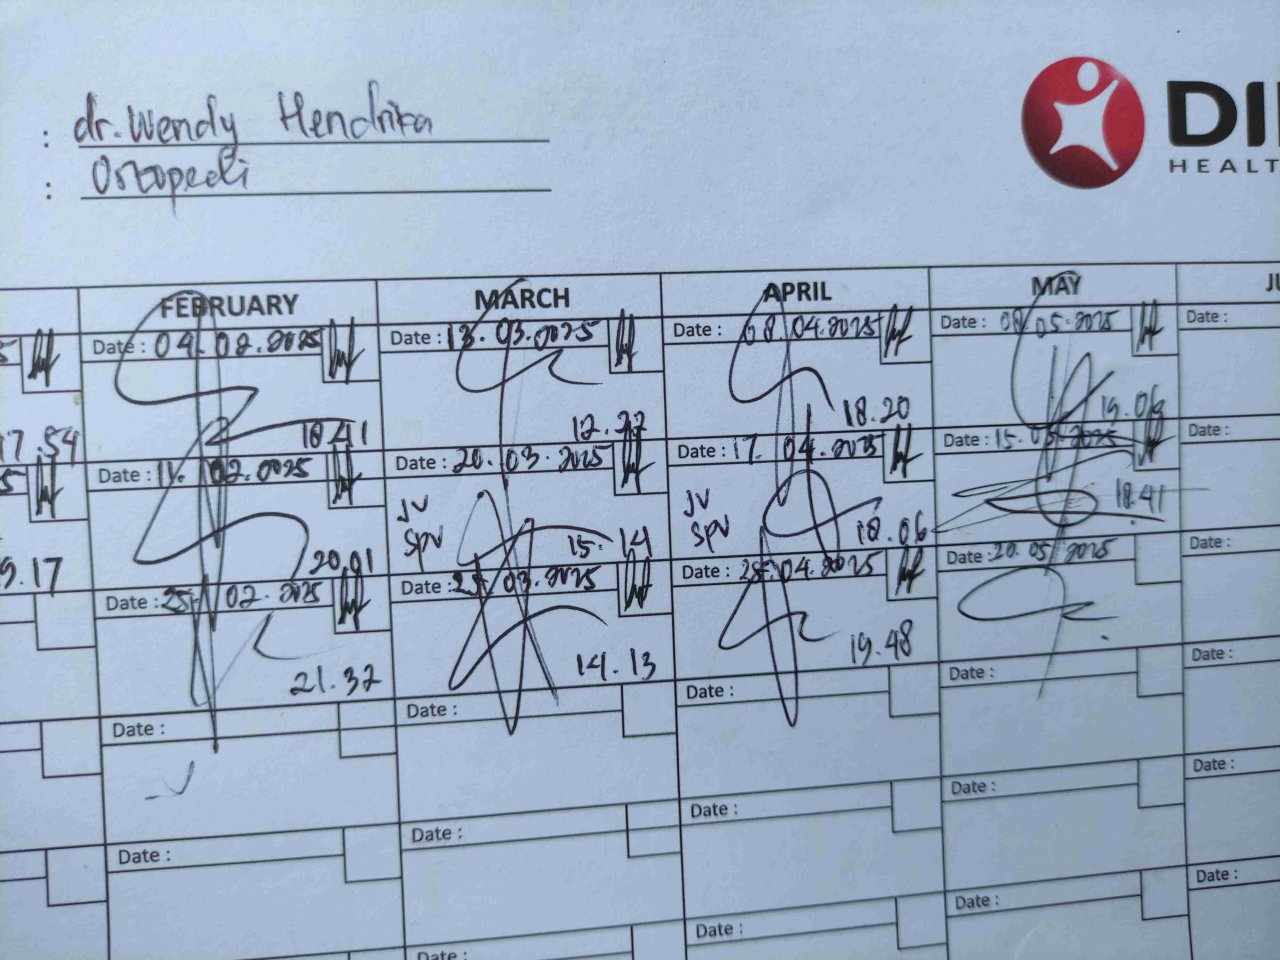 : dr. Wendy Hendrika
: Ortopedi
DI
HEALT
FEBRUARY MARCH APRIL MAY JU
Date : 04.02.2025 Date : 13.03.2025 Date : 08.04.2025 Date : 08.05.2025 Date :
17.54 18.41 18.20
Date : 02.2025 Date : 20.03.2025 Date : 17.04.2025 Date : 15.05.2025 Date :
JV JV 18.41
SPV 15.14 SPV 18.06
9.17 20.01
Date : 25.02.2025 Date : 25.03.2025 Date : 25.04.2025 Date : 20.05.2025 Date :
21.32 14.13 19.48
Date : Date : Date : Date : Date :
Date : Date : Date : Date : Date :
Date : Date : Date :
Date :